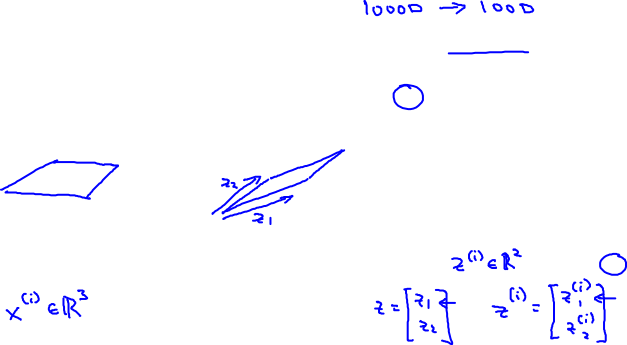 1000D → 100D
z₂
z₁
z⁽ⁱ⁾ ∈ ℝ²
x⁽ⁱ⁾ ∈ ℝ³
z = [z₁ ← z₂] z⁽ⁱ⁾ = [z₁⁽ⁱ⁾ ← z₂⁽ⁱ⁾]